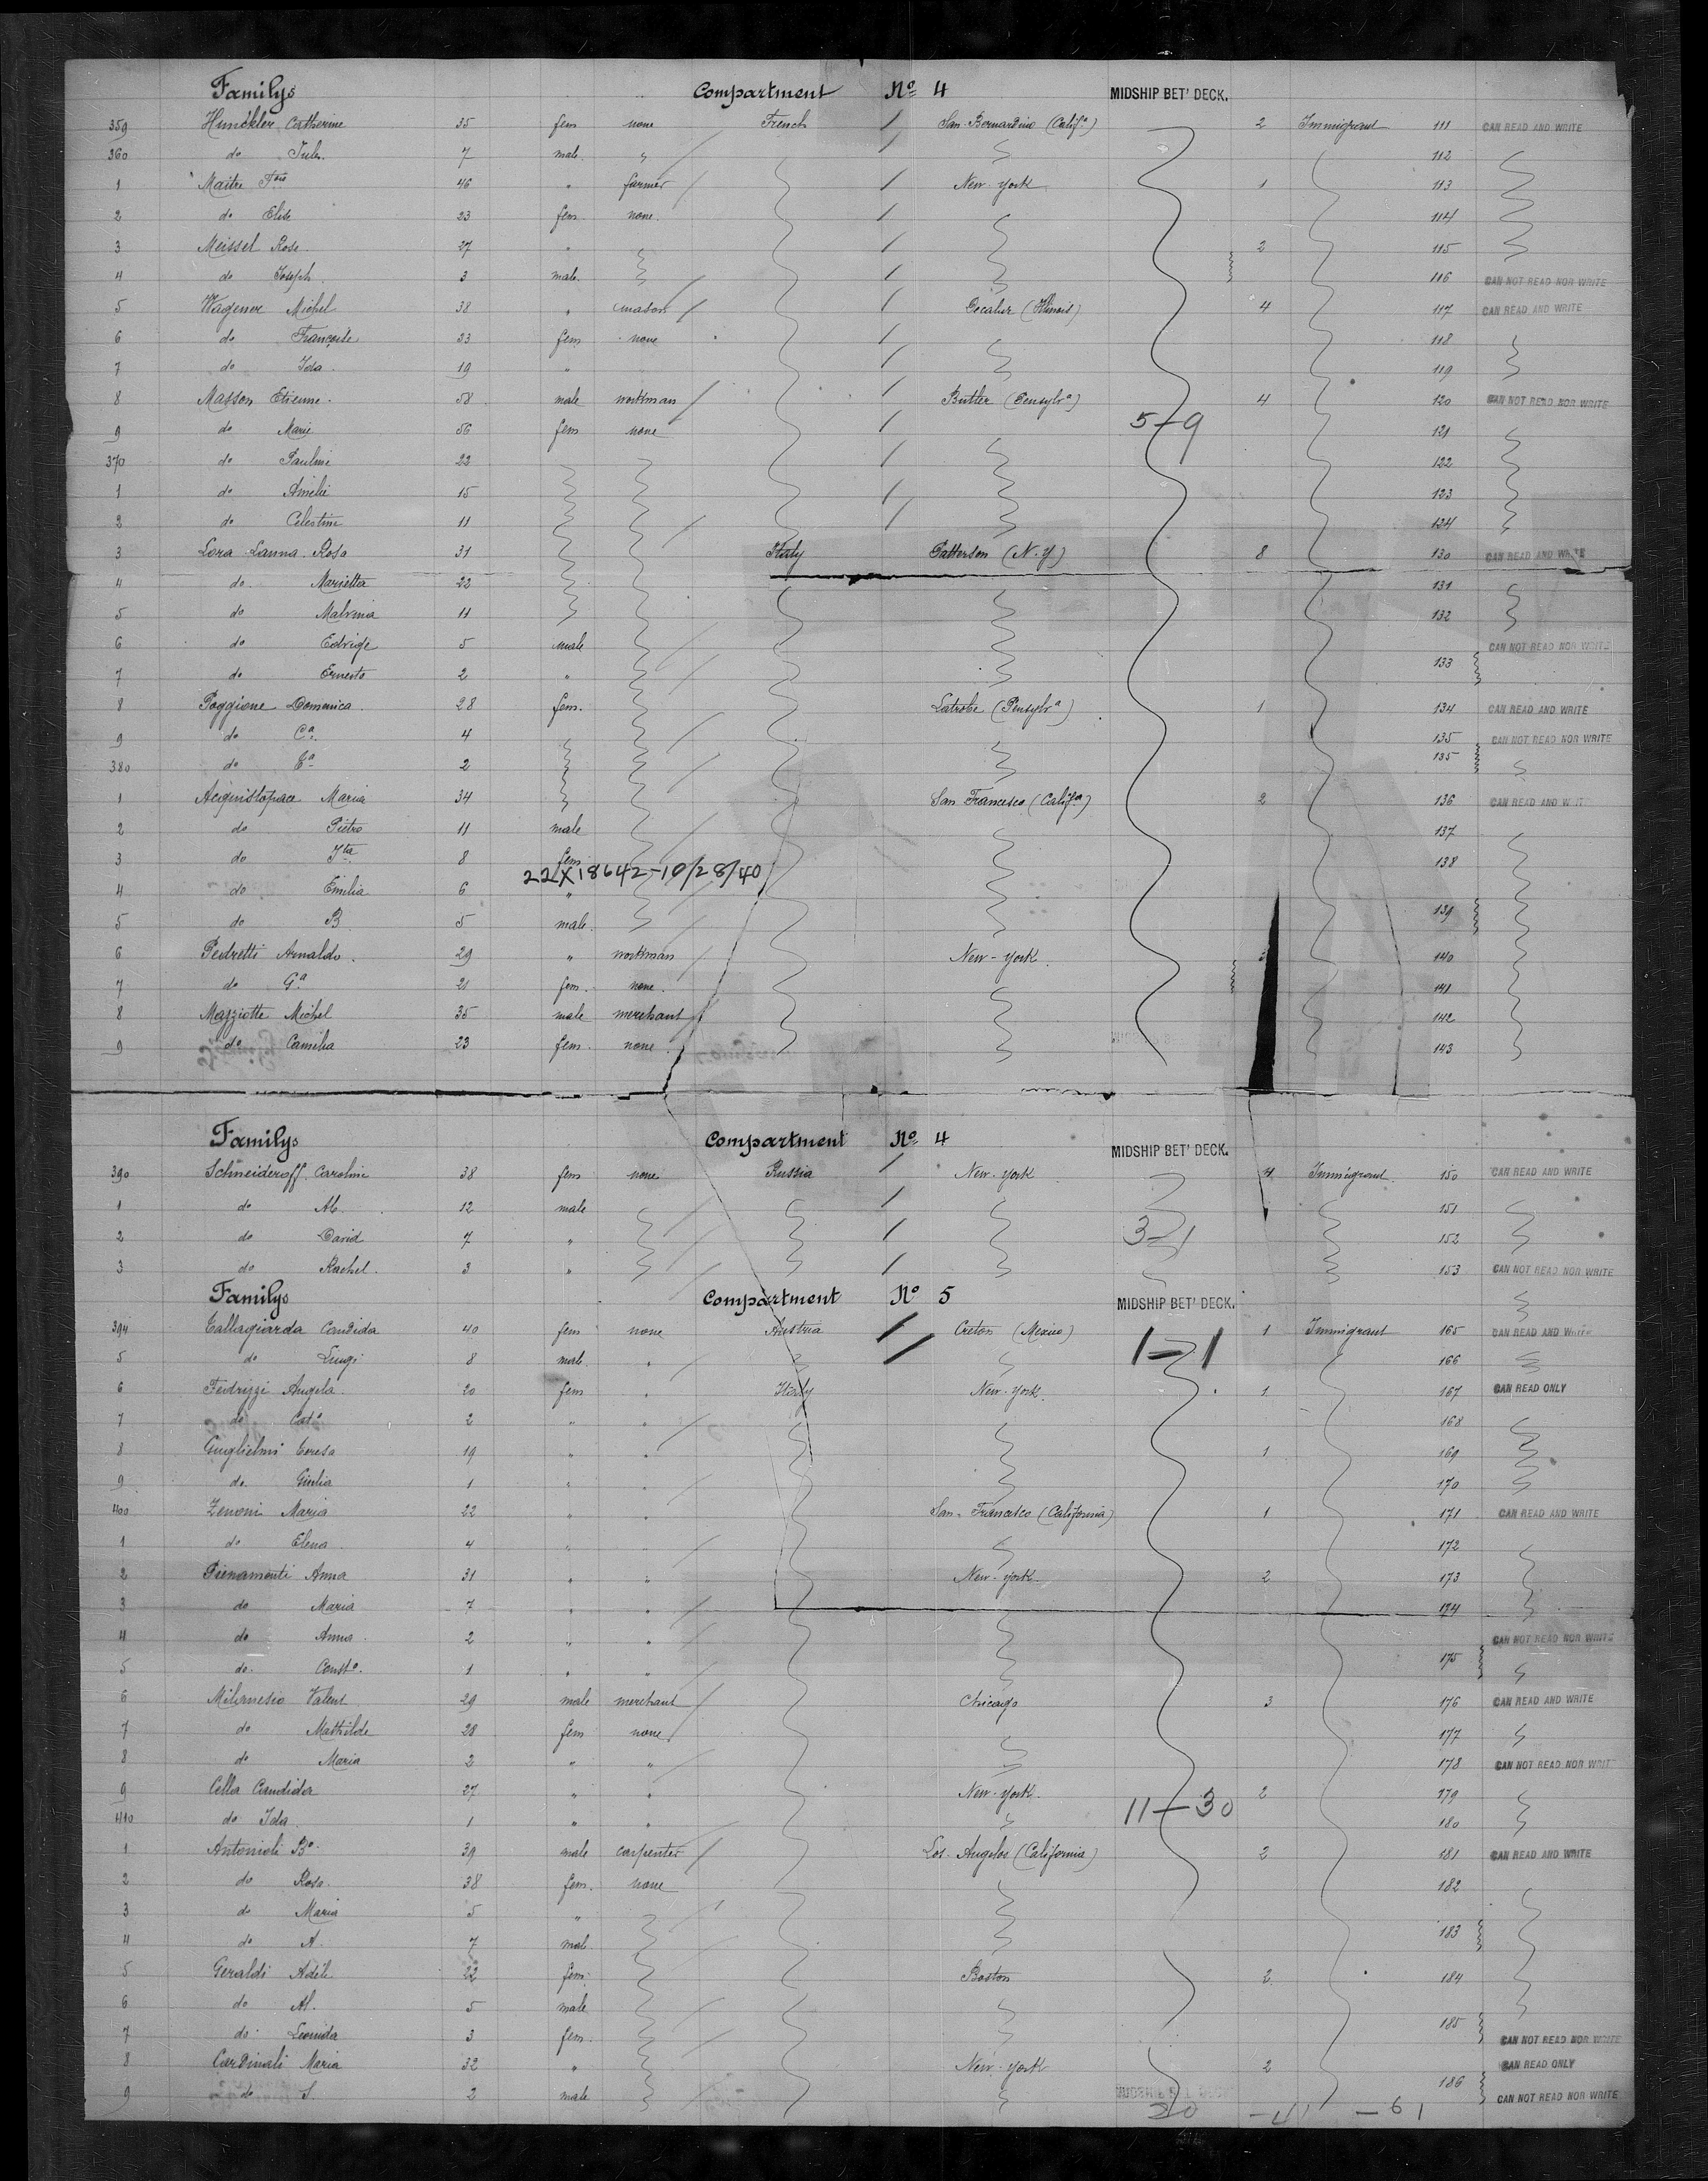 Familys Compartment No 4 MIDSHIP BET' DECK.
359 Hunckler Catherine 35 fem none French / San Bernardino (Califa) 2 Immigrant 111 CAN READ AND WRITE
360 do Jules 7 male " / 112
1 Maitre Fois 46 " farmer / New-york 1 113
2 do Elise 23 fem none / 114
3 Meissel Rose 27 " / 2 115
4 do Joseph 3 male / 116 CAN NOT READ NOR WRITE
5 Wagener Michel 38 " mason / (Illinois) 4 117 CAN READ AND WRITE
6 do Françoise 23 fem none / 118
7 do Ida 19 " / 119
8 Masson Etienne 58 male workman / Butler (Pensylva) 4 120 CAN NOT READ NOR WRITE
9 do Marie 56 fem none / 5-9 121
370 do Pauline 22 / 122
1 do Amelie 15 / 123
2 do Celestine 11 / 124
3 Lora Lanna Rosa 31 Italy Patterson (N.Y) 8 130 CAN READ AND WRITE
4 do Marietta 22 131
5 do Malvina 11 132
6 do Edvige 5 male CAN NOT READ NOR WRITE
7 do Ernesto 2 " 133
8 Poggione Domenica 28 fem. Latrobe (Pensylva) 1 134 CAN READ AND WRITE
9 do Ca 4 135 CAN NOT READ NOR WRITE
380 do Ea 2 135
1 Acquistapace Maria 34 San Francisco (Califa) 2 136 CAN READ AND WRITE
2 do Pietro 11 male 137
3 do Jta 8 fem 138
22X18642-10/28/40
4 do Emilia 6 "
5 do B 5 male 139
6 Pedretti Arnaldo 29 " workman New-york 140
7 do Ga 21 fem. none 141
8 Mazziotte Michel 35 male merchant 142
9 do Camilia 23 fem. none 143
Familys Compartment No 4 MIDSHIP BET' DECK.
390 Schneideroff Caroline 38 fem none Russia / New-york 4 Immigrant 150 CAN READ AND WRITE
1 do Ab. 12 male / 151
2 do David 7 " / 3-1 152
3 do Rachel 3 " / 153 CAN NOT READ NOR WRITE
Familys Compartment No 5 MIDSHIP BET' DECK.
394 Tallagiarda Candida 40 fem none Austria / Creton (Mexico) 1-1 1 Immigrant 165 CAN READ AND WRITE
5 do Luigi 8 male " / 166
6 Fedrizzi Angela 20 fem " Italy New-York 1 167 CAN READ ONLY
7 do Cata 2 " " 168
8 Guglielmi Teresa 19 " " 1 169
9 do Giulia 1 " " 170
400 Zenoni Maria 22 " " San-Francisco (California) 1 171 CAN READ AND WRITE
1 do Elena 4 " " 172
2 Pienamonti Anna 31 " " New-york 2 173
3 do Maria 7 " " 174
4 do Anna 2 " " CAN NOT READ NOR WRITE
5 do Consta 1 " " 175
6 Milanesio Valent 29 male merchant Chicago 3 176 CAN READ AND WRITE
7 do Mathilde 28 fem none 177
8 do Maria 2 " " 178 CAN NOT READ NOR WRITE
9 Cella Candida 27 " " New-york 2 179
410 do Ida 1 " " 11-30 180
1 Antonioli Bo 39 male carpenter Los Angelos (California) 2 181 CAN READ AND WRITE
2 do Rosa 38 fem. none 182
3 do Maria 5 " 183
4 do A. 7 male
5 Geraldi Adele 22 fem Boston 2 184
6 do Al. 5 male
7 do Leonida 3 fem. 185 CAN NOT READ NOR WRITE
8 Cardinali Maria 32 " New-york 2 CAN READ ONLY
9 do S 2 male 186 CAN NOT READ NOR WRITE
20 -41 -61